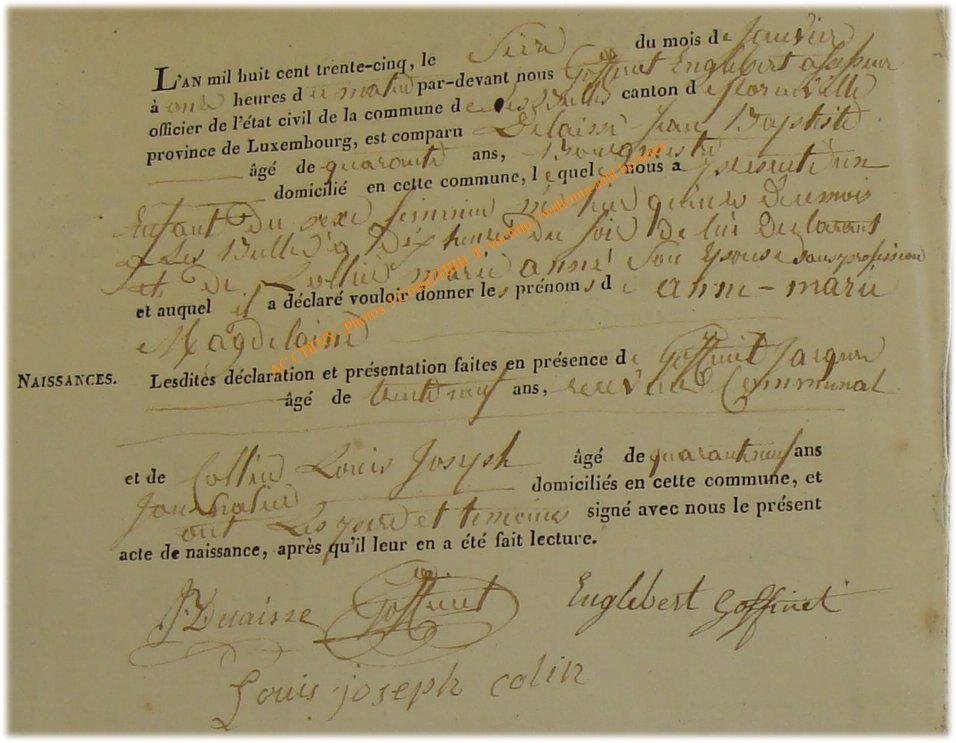 L'AN mil huit cent trente-cinq, le Seize du mois de Janvier
à onze heures d u matin par-devant nous Goffinet Englebert assesseur
officier de l'état civil de la commune de Les Bulles canton de florenville
province de Luxembourg, est comparu Delaisse Jean Baptiste
âgé de quarante ans, Bourgmestre
domicilié en cette commune, lequel nous a presenté un
Enfant du sexe feminin né hier quinze du mois
a Les Bulles a dix heures du soir de lui Declarant
et de Collin marie anne Son Epouse sans profession
et auquel il a déclaré vouloir donner les prénoms de anne-marie
Magdelaine
NAISSANCES. Lesdites déclaration et présentation faites en présence de Goffinet Jacques
âgé de trente neuf ans, receveur Communal
et de Collin Louis Joseph âgé de quarante neuf ans
Journalier domiciliés en cette commune, et
ont Les pere et temoins signé avec nous le présent
acte de naissance, après qu'il leur en a été fait lecture.
Goffinet Englebert Goffinet
Louis joseph colin